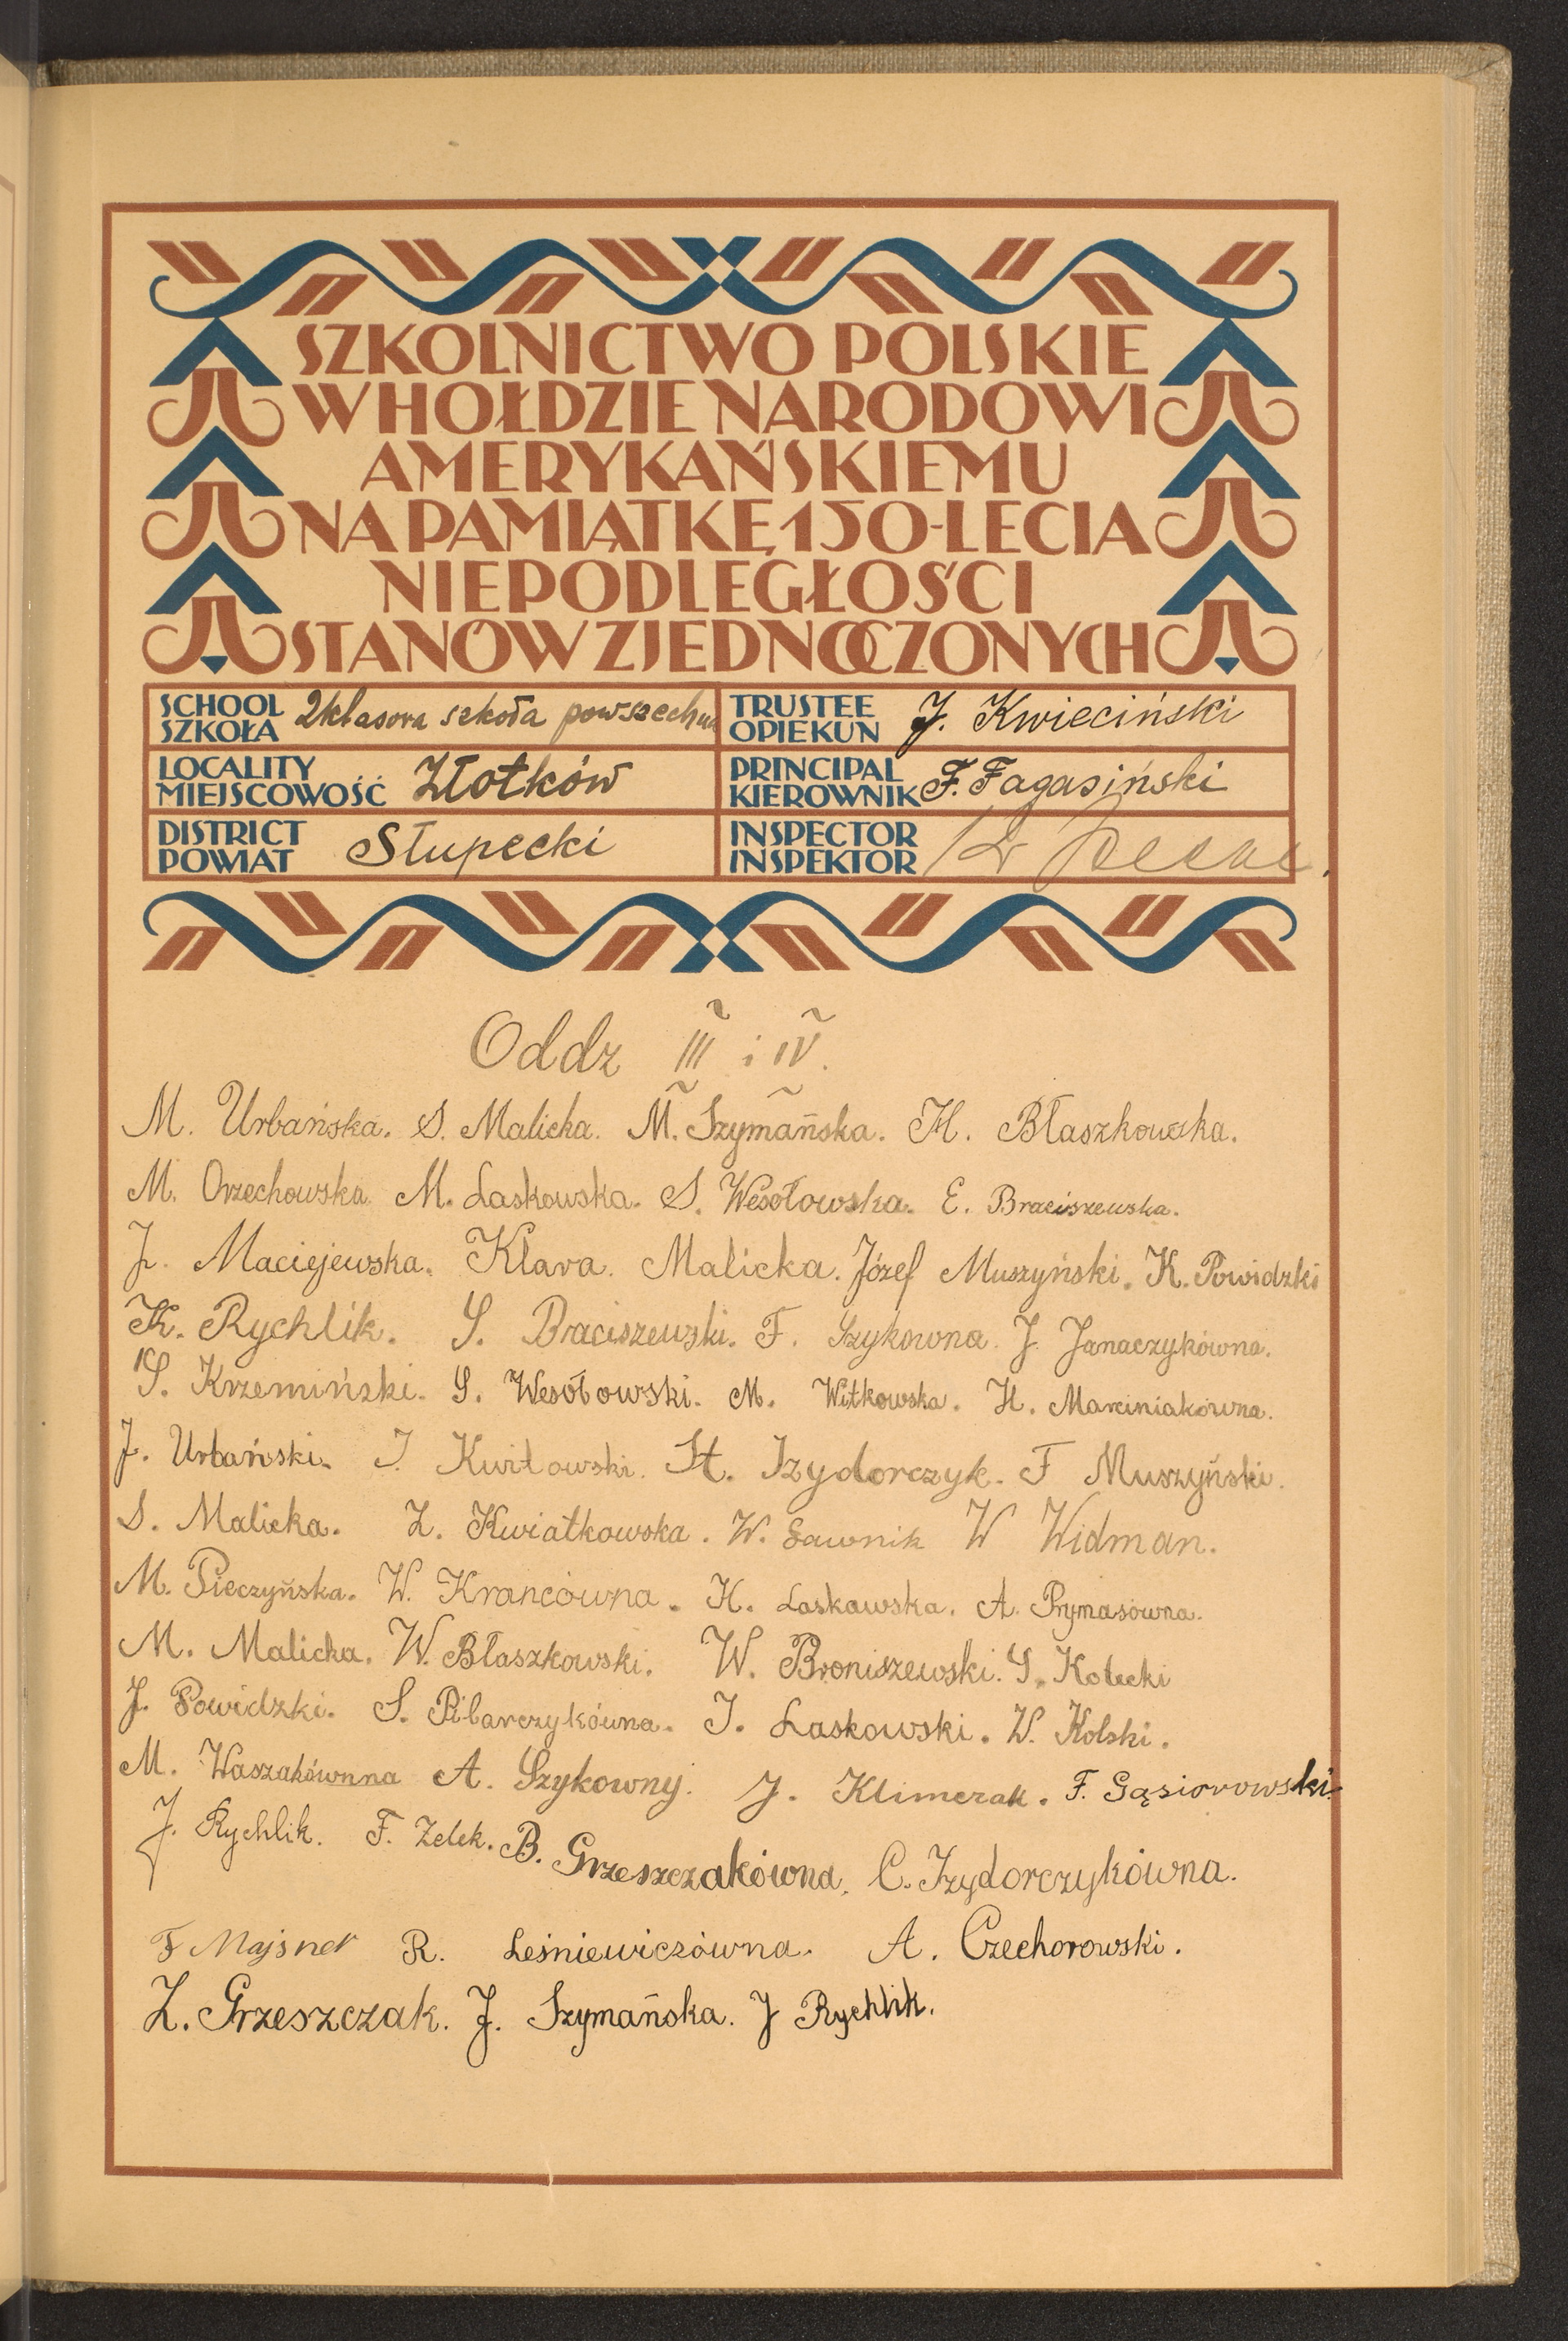 SZKOLNICTWO POLSKIE
W HOŁDZIE NARODOWI
AMERYKAŃSKIEMU
NA PAMIĄTKĘ 150-LECIA
NIEPODLEGŁOŚCI
STANÓW ZJEDNOCZONYCH
SCHOOL
SZKOŁA 2klasowa szkoła powszechna
TRUSTEE
OPIEKUN J. Kwieciński
LOCALITY
MIEJSCOWOŚĆ Złotków
PRINCIPAL
KIEROWNIK F. Fagasiński
DISTRICT
POWIAT Słupecki
INSPECTOR
INSPEKTOR
Oddz III i IV.
M. Urbańska. S. Malicka. M. Szymańska. H. Błaszkowska.
M. Orzechowska. M. Laskowska. S. Wesołowska. E. Braciszewska.
J. Maciejewska. Klara. Malicka. Józef Muszyński. K. Powidzki
K. Rychlik. S. Braciszewski. F. Szykowna. J. Janaczykówna.
S. Krzemiński. S. Wesołowski. M. Witkowska. H. Marciniakówna.
J. Urbański. J. Kwitowski. St. Izydorczyk. F Muszyński.
S. Malicka. Z. Kwiatkowska. W. Ławnik W Widman.
M. Pieczyńska. W. Krancówna. K. Laskawska. A. Prymasówna.
M. Malicka. W. Błaszkowski. W. Broniszewski. S. Kolecki
J. Powidzki. S. Pilarczykówna. J. Laskowski. W. Kolski.
M. Waszakównna A. Szykowny. J. Klimczak. F. Gąsiorowski.
J. Rychlik. F. Zelek. B. Grzeszczakówna. C. Izydorczykówna.
F Majsner R. Leśniewiczówna. A. Czechorowski.
Z. Grzeszczak. J. Szymańska. J Rychlik.